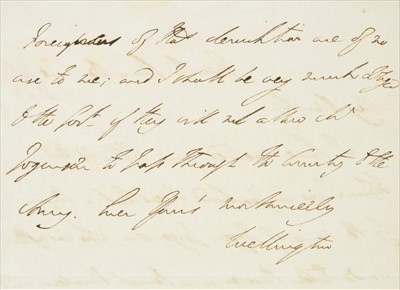 Foreigners of that description are of no
use to me; and I shall be very much obliged
to the Govt. if they will not allow Mr
Jorgenson to pass through the Country to the
Army. Ever Yours most sincerely
Wellington